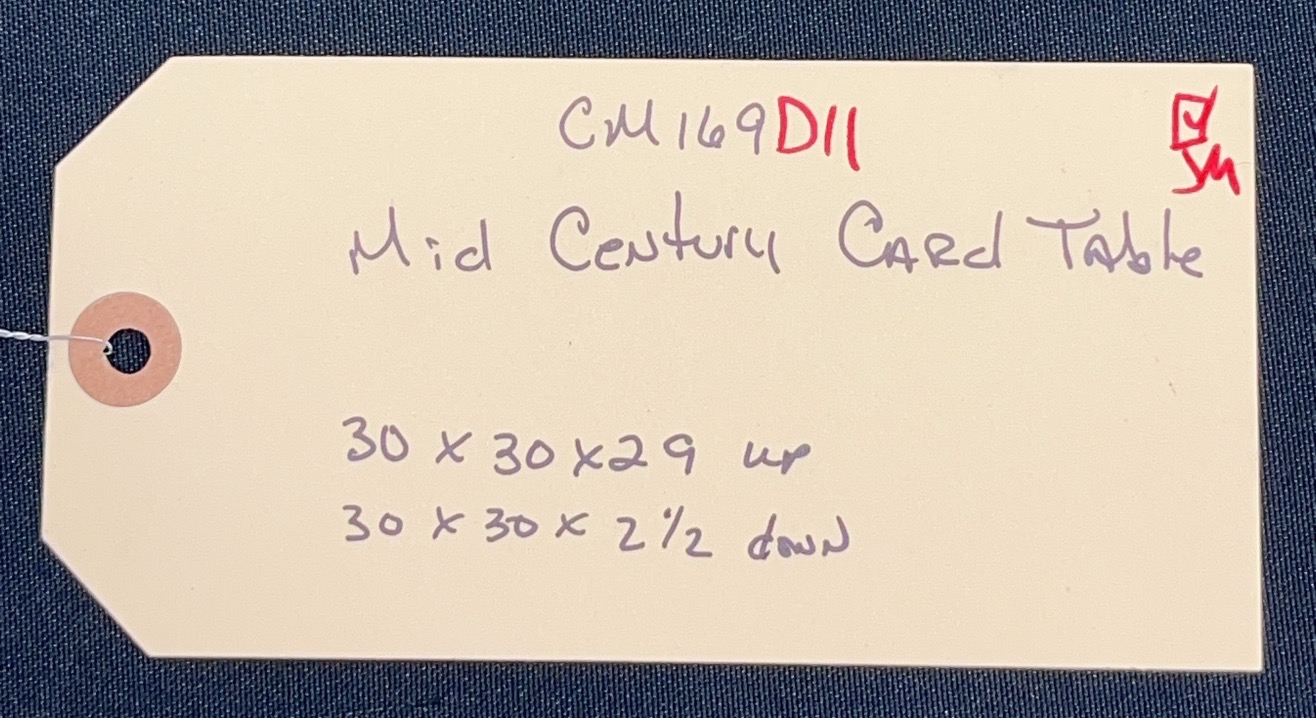 CM169D11
☑
SM
Mid Century Card Table
30 x 30 x 29 up
30 x 30 x 2 1/2 down